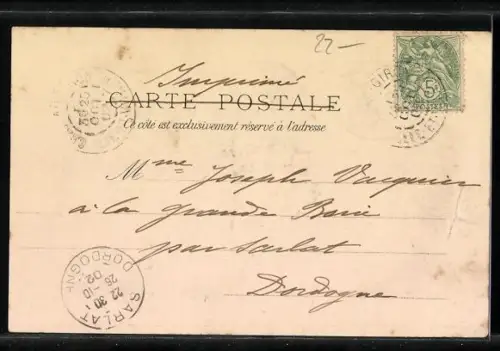 22-
Imprimé
CARTE POSTALE
Ce côté est exclusivement réservé à l'adresse
Mme Joseph Vacquier
à la grande Borie
par Sarlat
Dordogne
5c
SARLAT
DORDOGNE
22 30
25 -10
02